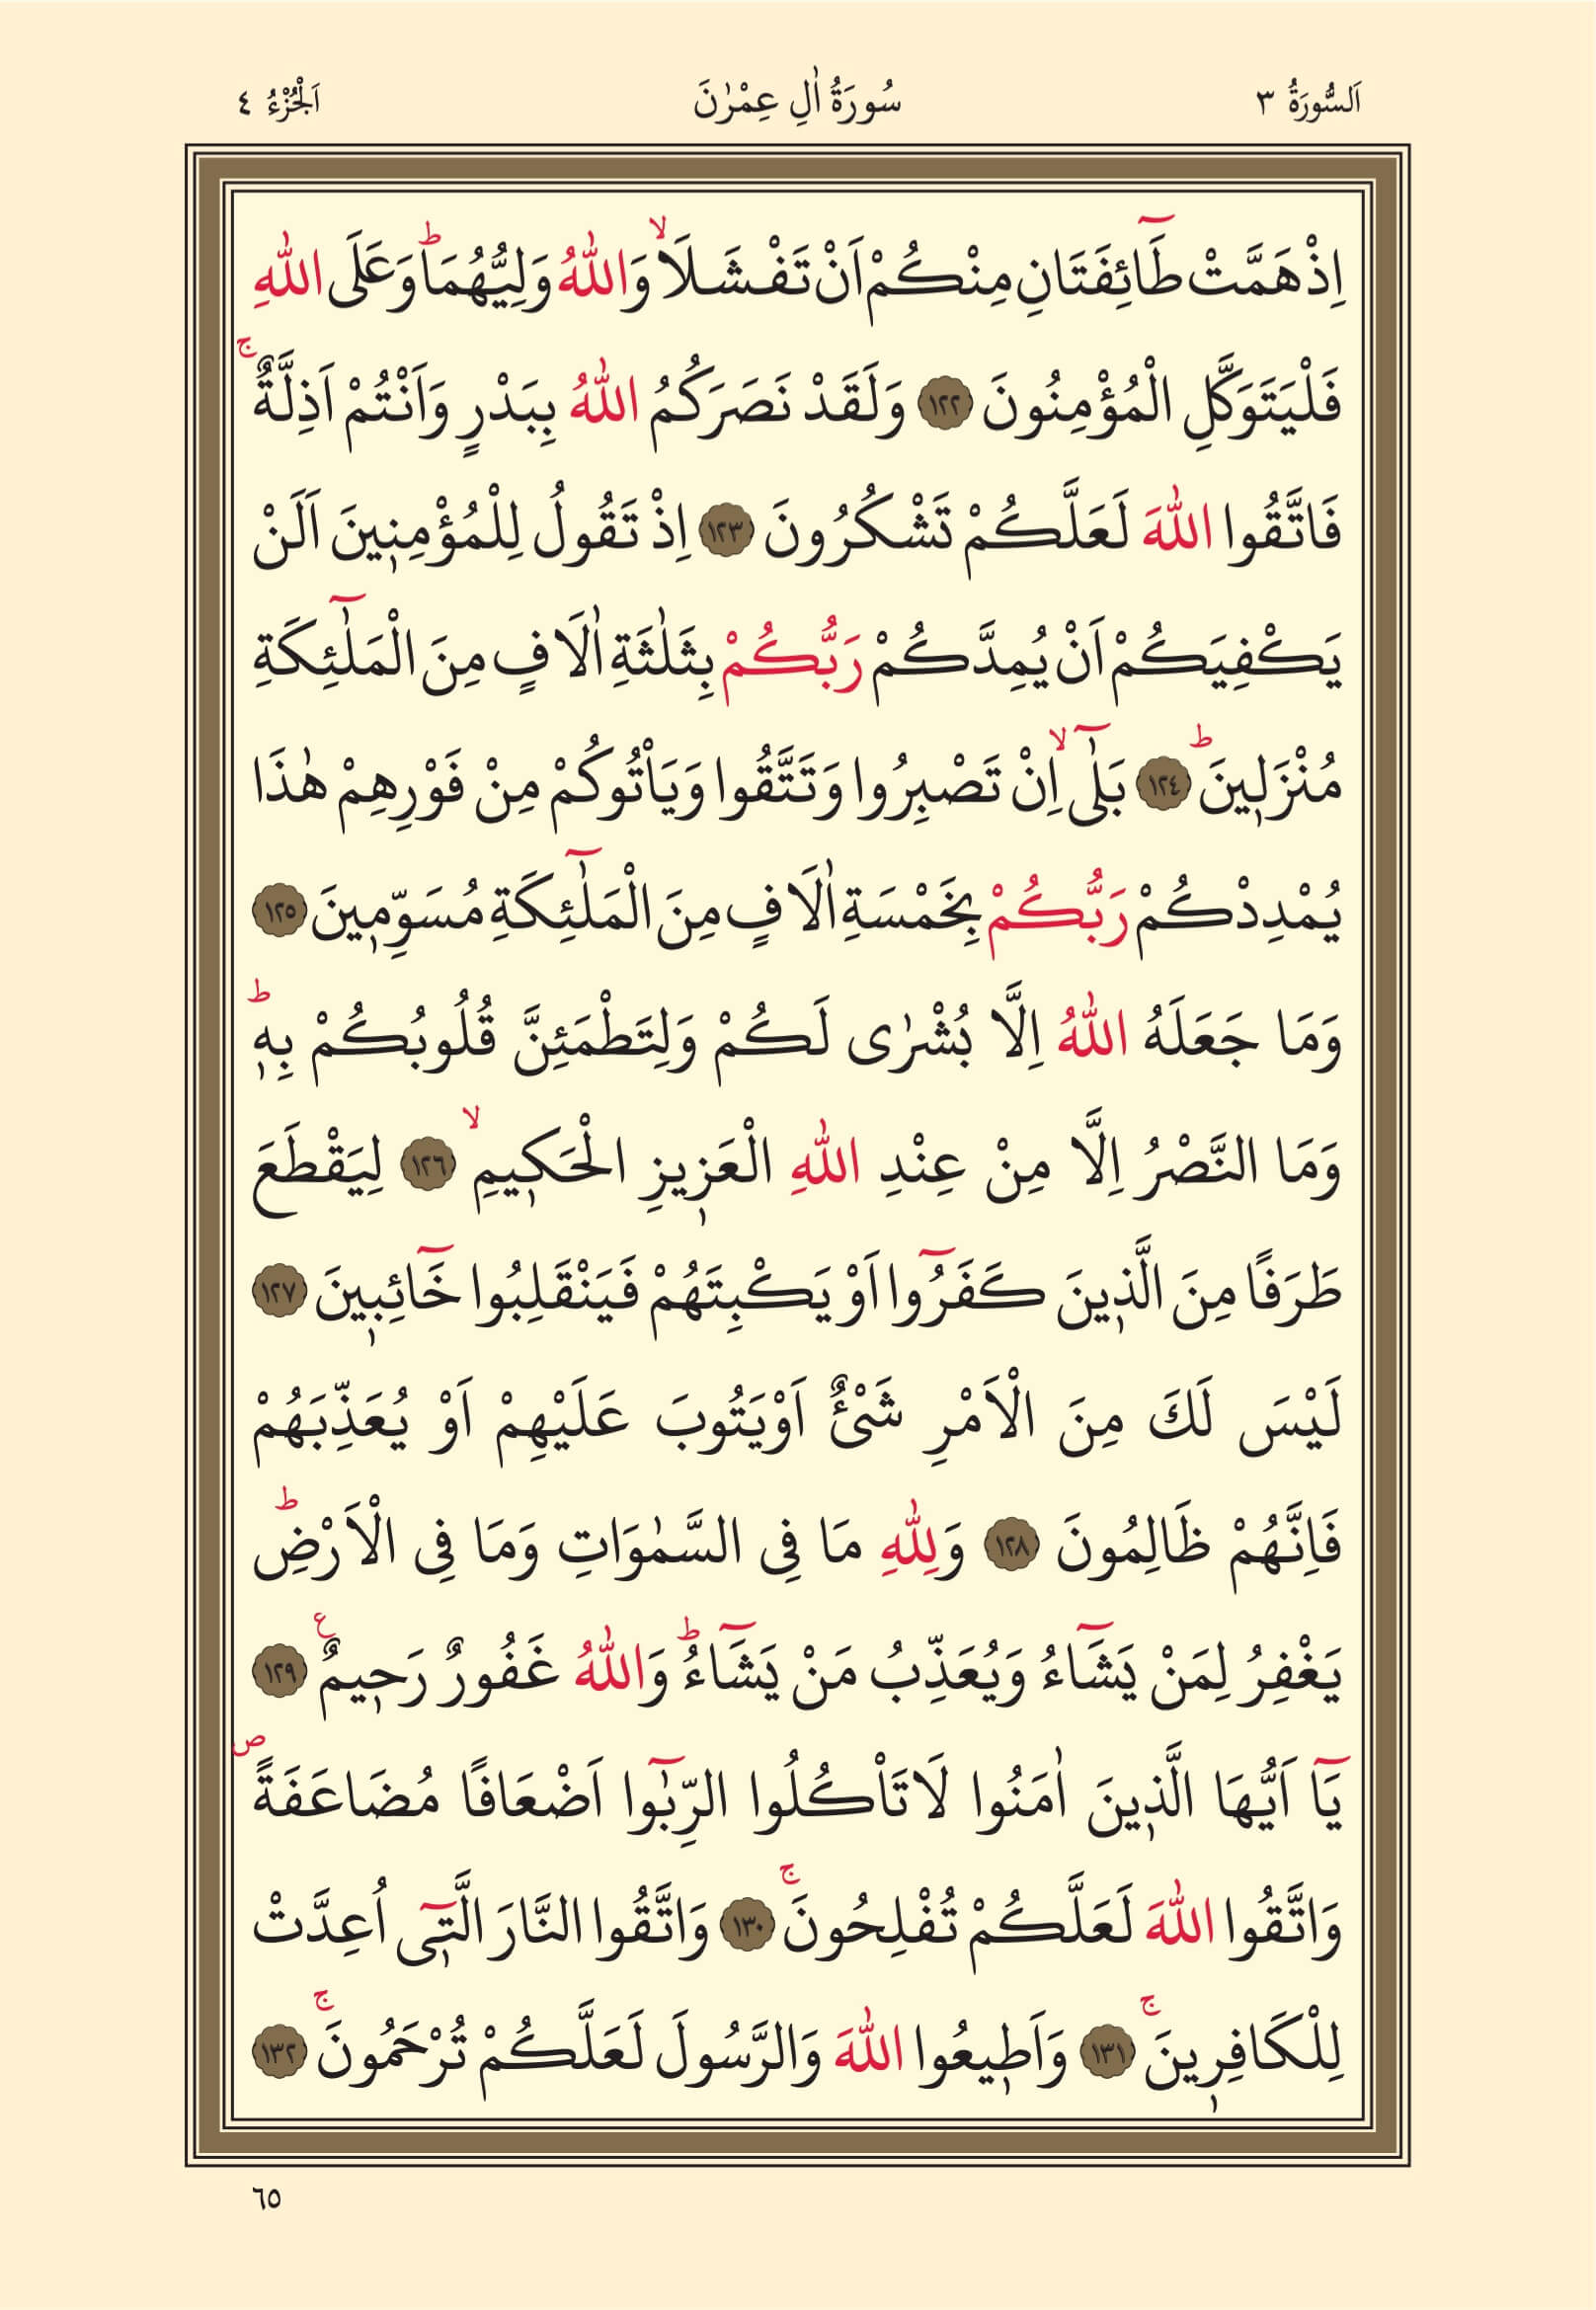 اَلسُّورَةُ ٣ سُورَةُ اٰلِ عِمْرٰنَ اَلْجُزْءُ ٤
اِذْ هَمَّتْ طَٓائِفَتَانِ مِنْكُمْ اَنْ تَفْشَلَاۙ وَاللّٰهُ وَلِيُّهُمَاۜ وَعَلَى اللّٰهِ
فَلْيَتَوَكَّلِ الْمُؤْمِنُونَ ﴿١٢٢﴾ وَلَقَدْ نَصَرَكُمُ اللّٰهُ بِبَدْرٍ وَاَنْتُمْ اَذِلَّةٌۚ
فَاتَّقُوا اللّٰهَ لَعَلَّكُمْ تَشْكُرُونَ ﴿١٢٣﴾ اِذْ تَقُولُ لِلْمُؤْمِن۪ينَ اَلَنْ
يَكْفِيَكُمْ اَنْ يُمِدَّكُمْ رَبُّكُمْ بِثَلٰثَةِ اٰلَافٍ مِنَ الْمَلٰٓئِكَةِ
مُنْزَل۪ينَۜ ﴿١٢٤﴾ بَلٰٓىۙ اِنْ تَصْبِرُوا وَتَتَّقُوا وَيَأْتُوكُمْ مِنْ فَوْرِهِمْ هٰذَا
يُمْدِدْكُمْ رَبُّكُمْ بِخَمْسَةِ اٰلَافٍ مِنَ الْمَلٰٓئِكَةِ مُسَوِّم۪ينَ ﴿١٢٥﴾
وَمَا جَعَلَهُ اللّٰهُ اِلَّا بُشْرٰى لَكُمْ وَلِتَطْمَئِنَّ قُلُوبُكُمْ بِه۪ۜ
وَمَا النَّصْرُ اِلَّا مِنْ عِنْدِ اللّٰهِ الْعَز۪يزِ الْحَك۪يمِۙ ﴿١٢٦﴾ لِيَقْطَعَ
طَرَفًا مِنَ الَّذ۪ينَ كَفَرُٓوا اَوْ يَكْبِتَهُمْ فَيَنْقَلِبُوا خَٓائِب۪ينَ ﴿١٢٧﴾
لَيْسَ لَكَ مِنَ الْاَمْرِ شَيْءٌ اَوْيَتُوبَ عَلَيْهِمْ اَوْ يُعَذِّبَهُمْ
فَاِنَّهُمْ ظَالِمُونَ ﴿١٢٨﴾ وَلِلّٰهِ مَا فِي السَّمٰوَاتِ وَمَا فِي الْاَرْضِۜ
يَغْفِرُ لِمَنْ يَشَٓاءُ وَيُعَذِّبُ مَنْ يَشَٓاءُۜ وَاللّٰهُ غَفُورٌ رَح۪يمٌ ع ﴿١٢٩﴾
يَٓا اَيُّهَا الَّذ۪ينَ اٰمَنُوا لَا تَأْكُلُوا الرِّبٰٓوا اَضْعَافًا مُضَاعَفَةًۖ
وَاتَّقُوا اللّٰهَ لَعَلَّكُمْ تُفْلِحُونَۚ ﴿١٣٠﴾ وَاتَّقُوا النَّارَ الَّت۪ٓي اُعِدَّتْ
لِلْكَافِر۪ينَۚ ﴿١٣١﴾ وَاَط۪يعُوا اللّٰهَ وَالرَّسُولَ لَعَلَّكُمْ تُرْحَمُونَۚ ﴿١٣٢﴾
٦٥